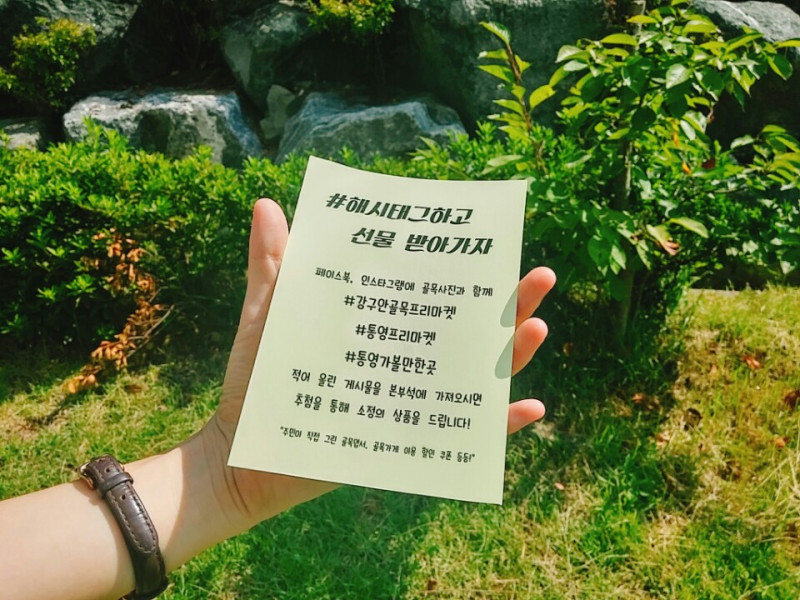 #해시태그하고
선물 받아가자
페이스북, 인스타그램에 골목사진과 함께
#강구안골목프리마켓
#통영프리마켓
#통영가볼만한곳
적어 올린 게시물을 본부석에 가져오시면
추첨을 통해 소정의 상품을 드립니다!
"주민이 직접 그린 골목엽서, 골목가게 이용 할인 쿠폰 등등!"